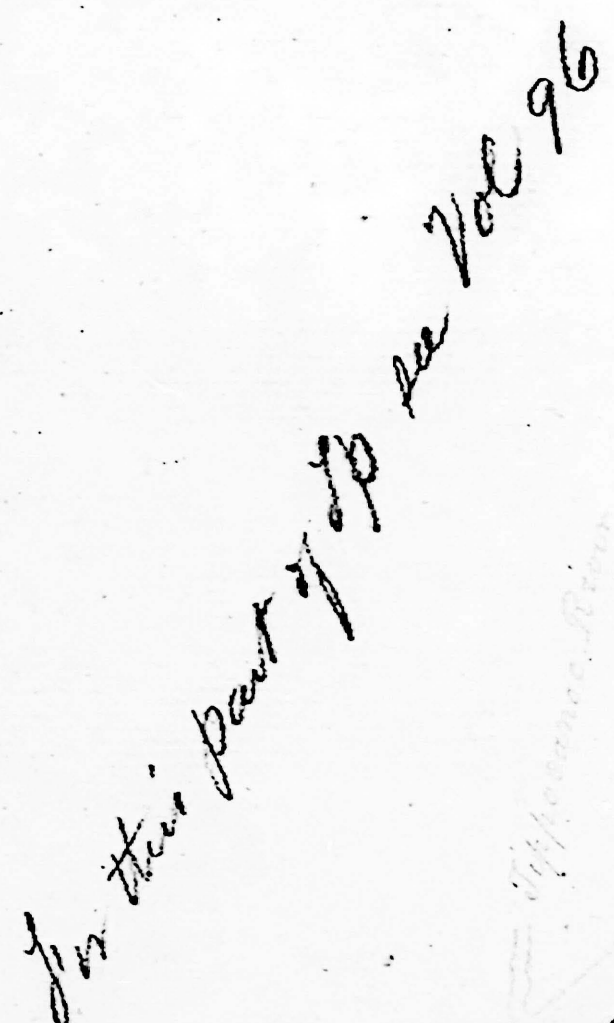 For this part of Tp see Vol 96
Tippecanoe River